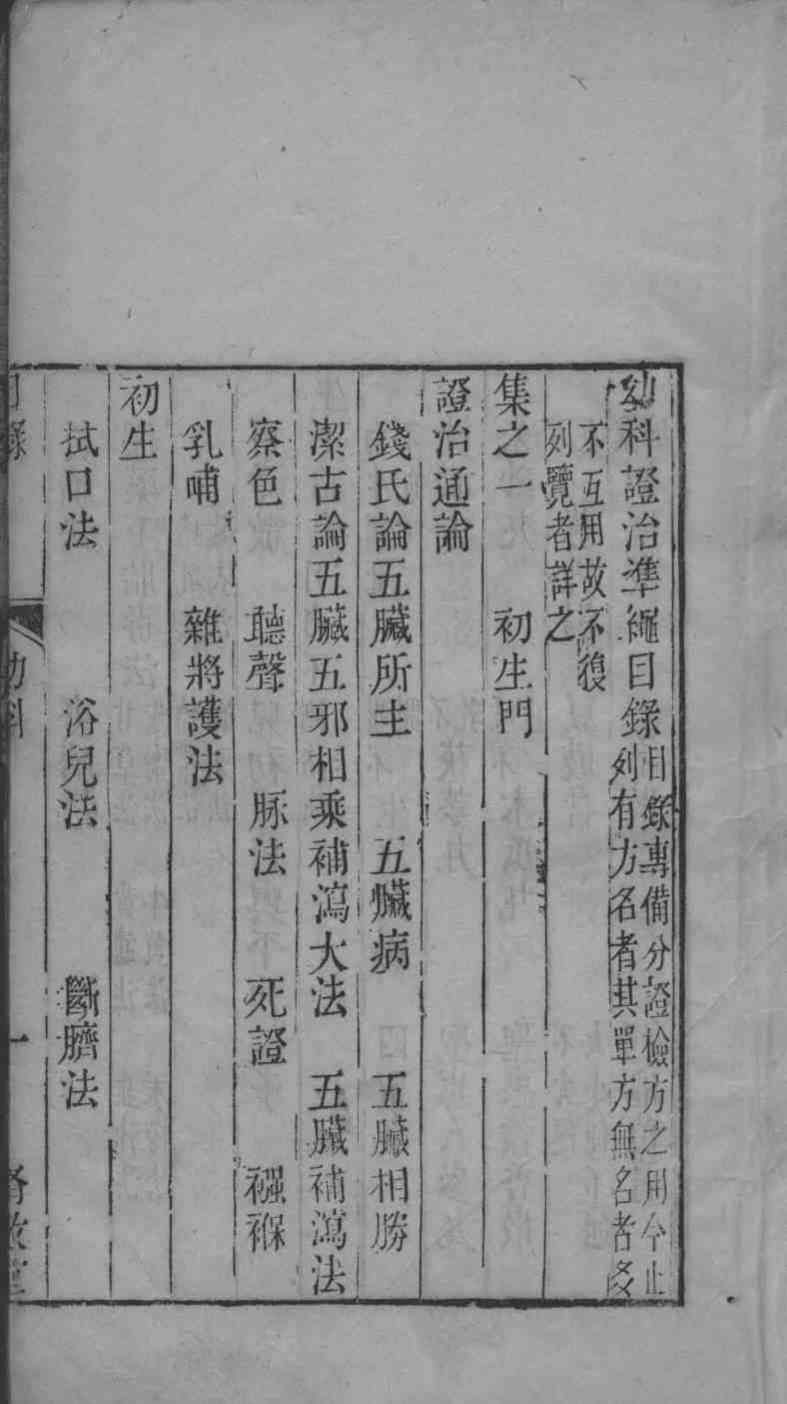 幼科證治準繩目錄 目錄專備分證檢方之用今止
列有方名者其單方無名者及
不互用故不復
列覽者詳之
集之一 初生門
證治通論
錢氏論五臟所主 五臟病 五臟相勝
潔古論五臟五邪相乘補瀉大法 五臟補瀉法
察色 聽聲 脉法 死證 襁褓
乳哺 雜將護法
初生
拭口法 浴兒法 斷臍法
目錄 幼科 一